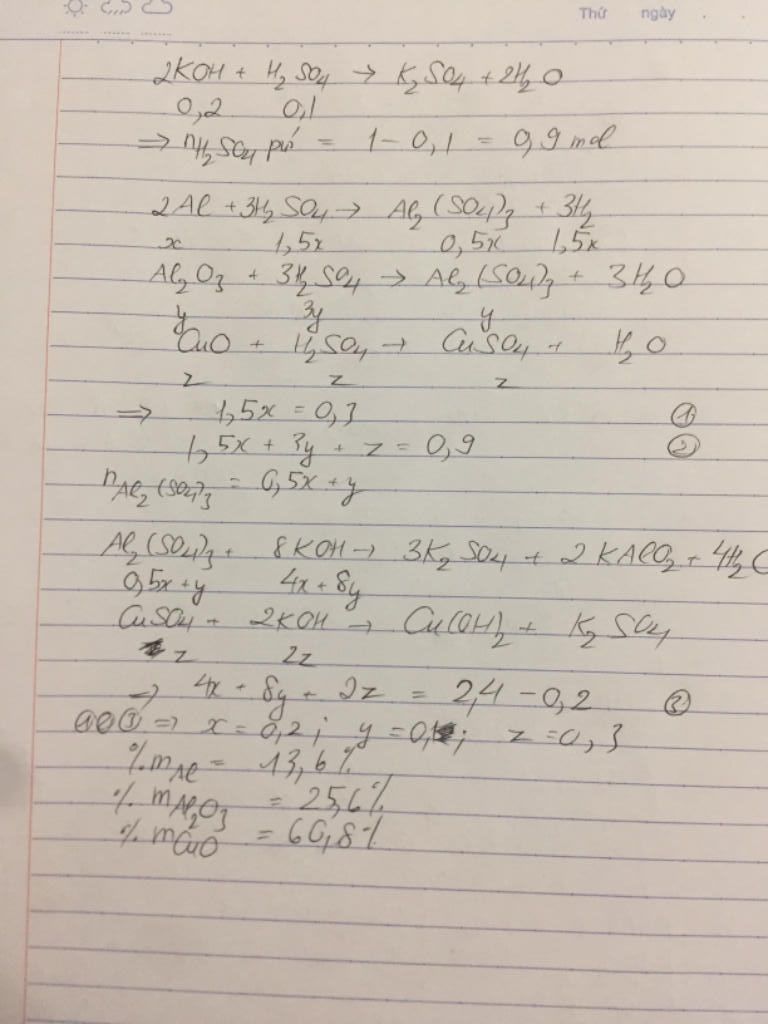 Thứ ngày . .
2KOH + H₂SO₄ → K₂SO₄ + 2H₂O
0,2 0,1
=> nH₂SO₄ pứ = 1 - 0,1 = 0,9 mol
2Al + 3H₂SO₄ → Al₂(SO₄)₃ + 3H₂
x 1,5x 0,5x 1,5x
Al₂O₃ + 3H₂SO₄ → Al₂(SO₄)₃ + 3H₂O
y 3y y
CuO + H₂SO₄ → CuSO₄ + H₂O
z z z
=> 1,5x = 0,3 ①
1,5x + 3y + z = 0,9 ②
nAl₂(SO₄)₃ = 0,5x + y
Al₂(SO₄)₃ + 8KOH → 3K₂SO₄ + 2KAlO₂ + 4H₂O
0,5x+y 4x+8y
CuSO₄ + 2KOH → Cu(OH)₂ + K₂SO₄
z 2z
=> 4x + 8y + 2z = 2,4 - 0,2 ③
①②③ => x = 0,2; y = 0,1; z = 0,3
%mAl = 13,6%
%mAl₂O₃ = 25,6%
%mCuO = 60,8%